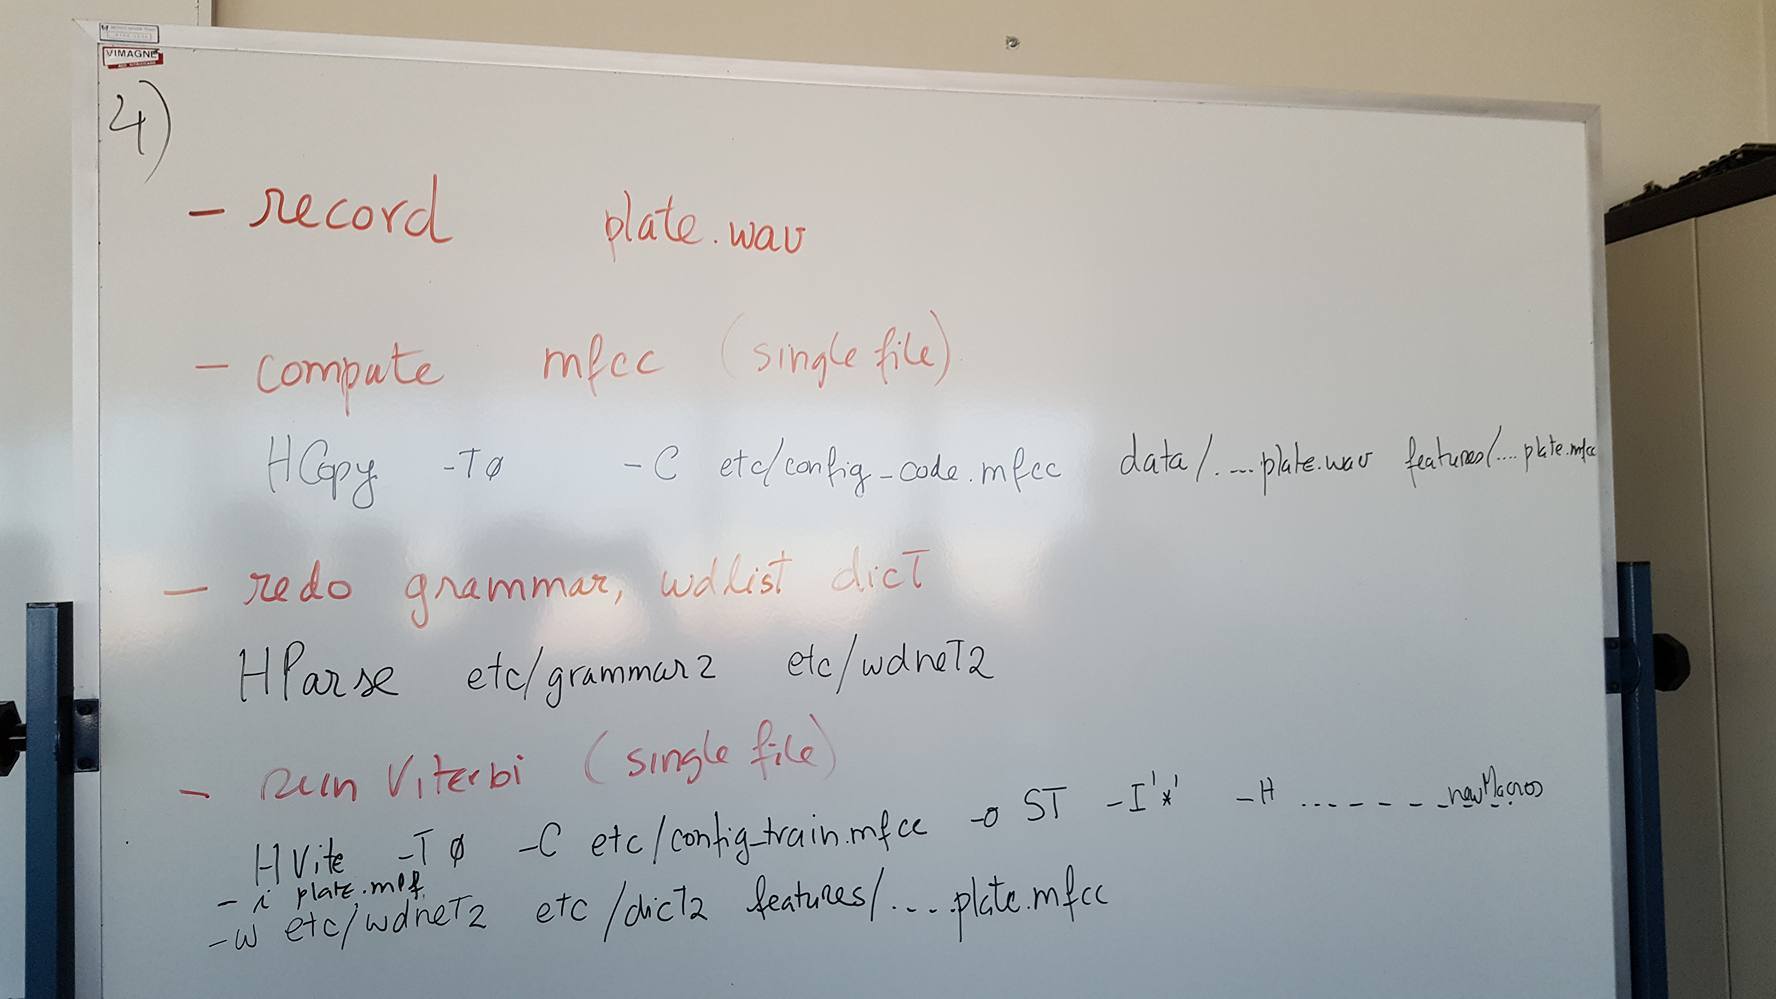 VIMAGNE
4)
- record plate.wav
- compute mfcc (single file)
HCopy -T 0 -C etc/config_code.mfcc data/....plate.wav features/....plate.mfcc
- redo grammar, wdlist dicT
HParse etc/grammar2 etc/wdneT2
- run Viterbi (single file)
HVite -T 0 -C etc/config_train.mfcc -o ST -I '*' -H ........newMacros
- i plate.mlf
-w etc/wdneT2 etc/dicT2 features/....plate.mfcc